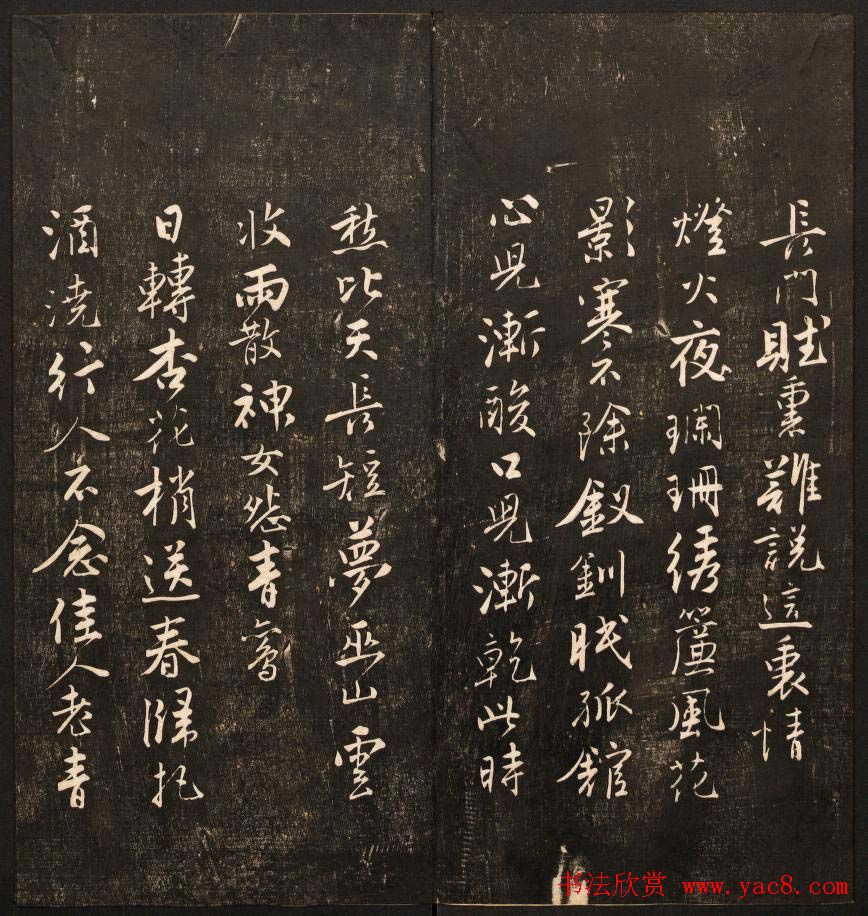 長門賦裏難説這裏情
燈火夜瓓珊綉簾風花
影寒不除釵釧眠孤館
心児漸酸口児漸乾此時
愁比天長短夢巫山雲
收雨散神女怨青鸞
日轉杏花梢送春歸把
酒澆行人不念佳人老青
书法欣赏 www.yac8.com